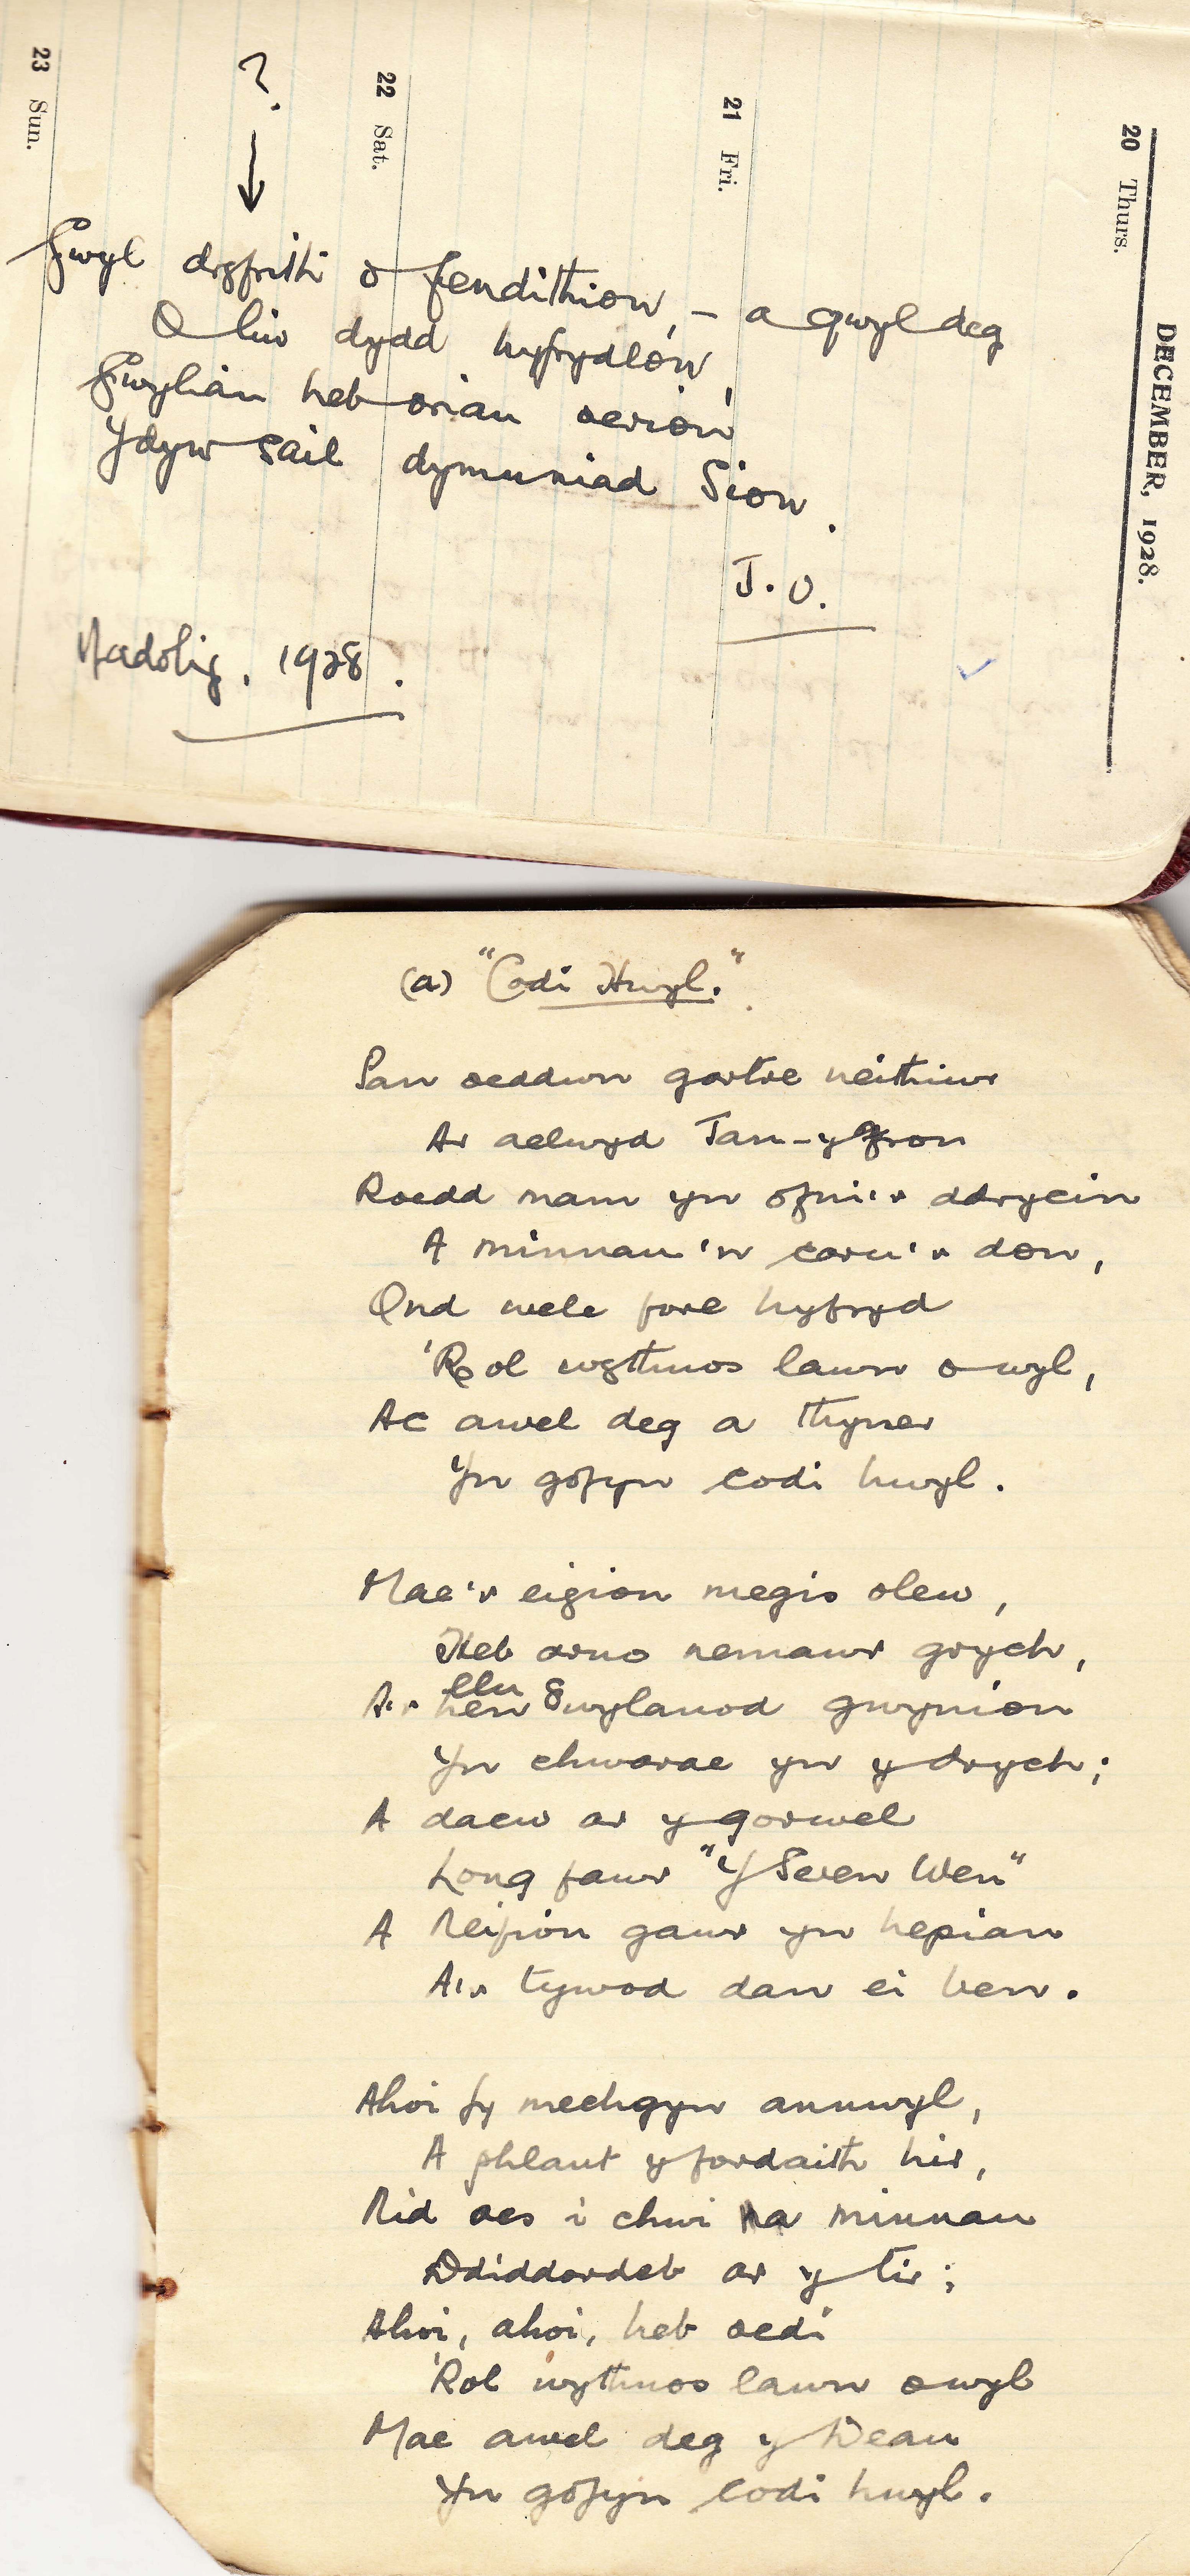 DECEMBER, 1928.
20 Thurs.
21 Fri.
22 Sat.
23 Sun.
?
Gwyl drgfrith o fendithion, – a gwyl deg
O liw dydd hyfrydlon,
Gwyliau heb oriau oerion
Ydyw sail dymuniad Sion.
J. O.
Nadolig, 1928.
(a) "Codi Hwyl."
Pan oeddwn gartre neithiwr
Ar aelwyd Tan-y-fron
Roedd mam yn ofni'r ddrycin
A minnau'n caru'r don,
Ond wele fore hyfryd
'Rol wythnos lawn o wyl,
Ac awel deg a thyner
Yn gofyn codi hwyl.
Mae'r eigion megis olew,
Heb arno nemawr grych,
llu
A'r hen gwylanod gwynion
Yn chwarae yn y drych;
A daew ar y gorwel
Long fawr "Y Seren Wen"
A Neifion gawr yn hepian
A'r tywod dan ei ben.
Ahoi fy mechgyn annwyl,
A phlant y fordaith hir,
Nid oes i chwi na minnau
Ddiddordeb ar y tir;
Ahoi, ahoi, heb oedi
'Rol wythnos lawn o wyl
Mae awel deg y Deau
Yn gofyn codi hwyl.